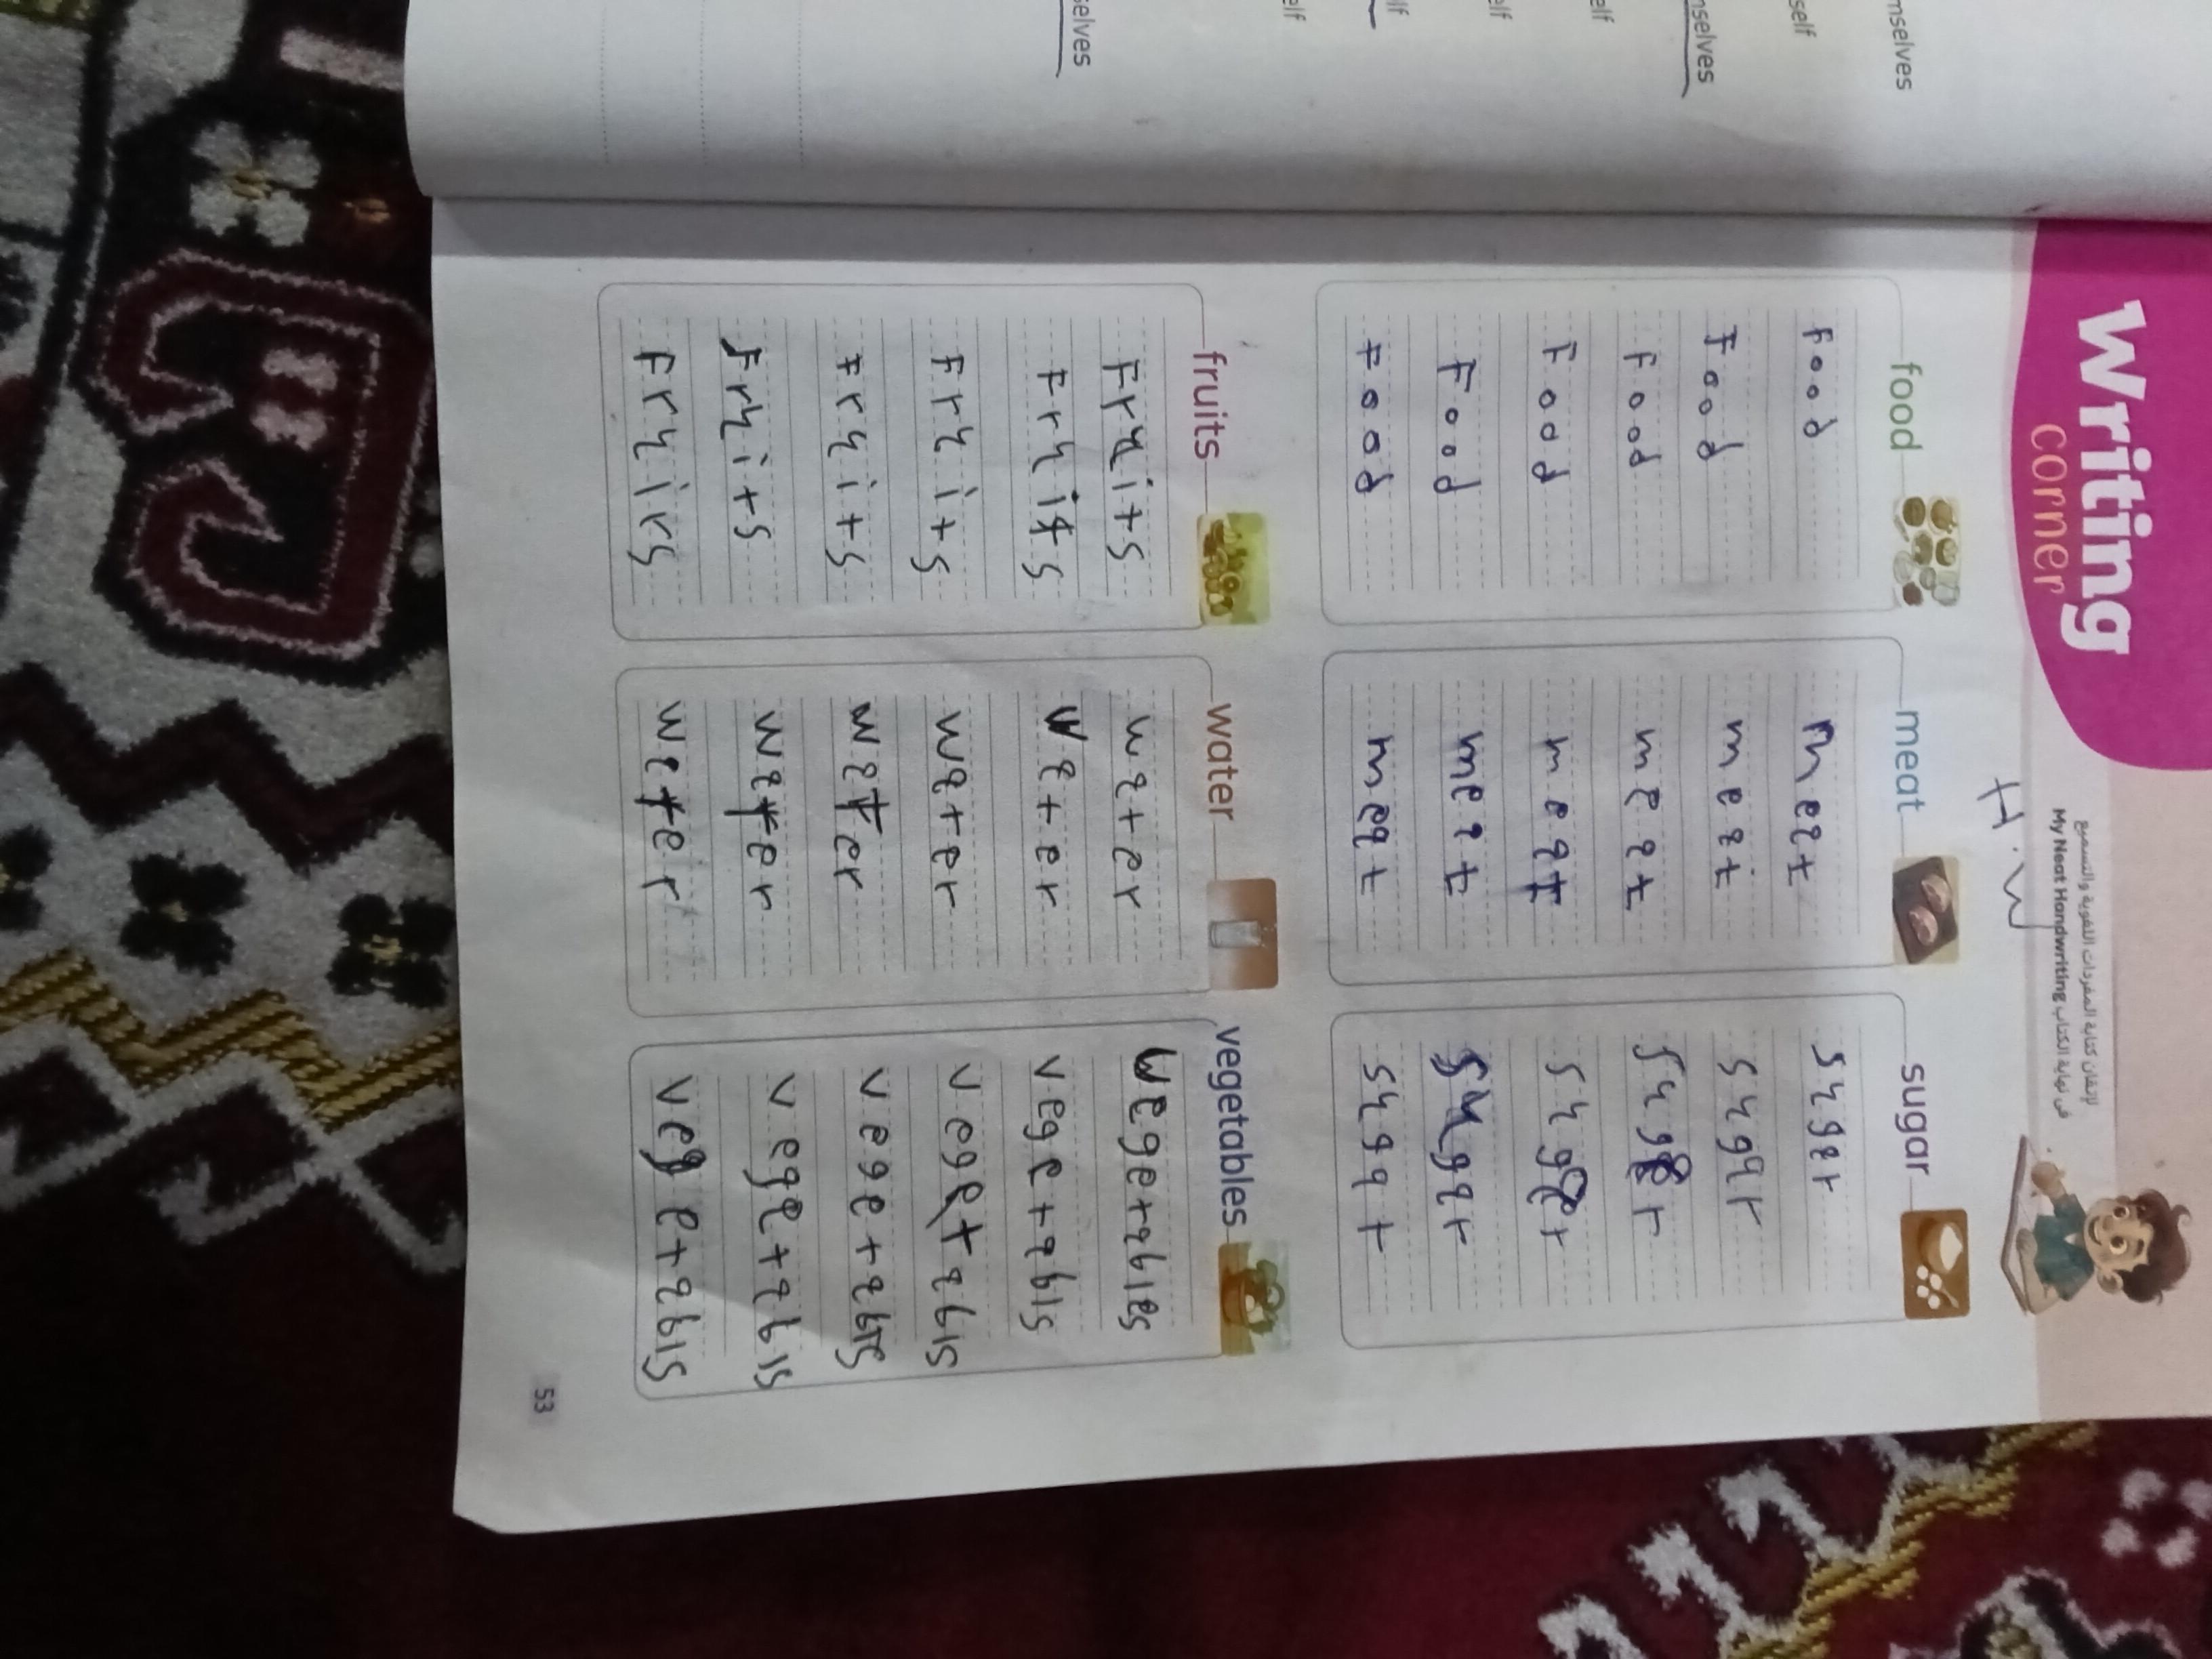 mselves
self
mselves
elf
elf
lf
elf
selves
Writing
corner
لإتقان كتابة المفردات اللغوية والتسميع
في نهاية الكتاب My Neat Handwriting
H.W
food
Food
Food
Food
Food
Food
Food
meat
meat
meat
meat
meat
meat
meat
sugar
sugar
sugar
sugar
sugar
sugar
sugat
fruits
Fruits
Fruits
Fruits
Fruits
Fruits
Fruirs
water
water
water
water
water
water
water
vegetables
vegetables
vegetabls
vegetabls
vegetabls
vegetabls
vegetabls
53